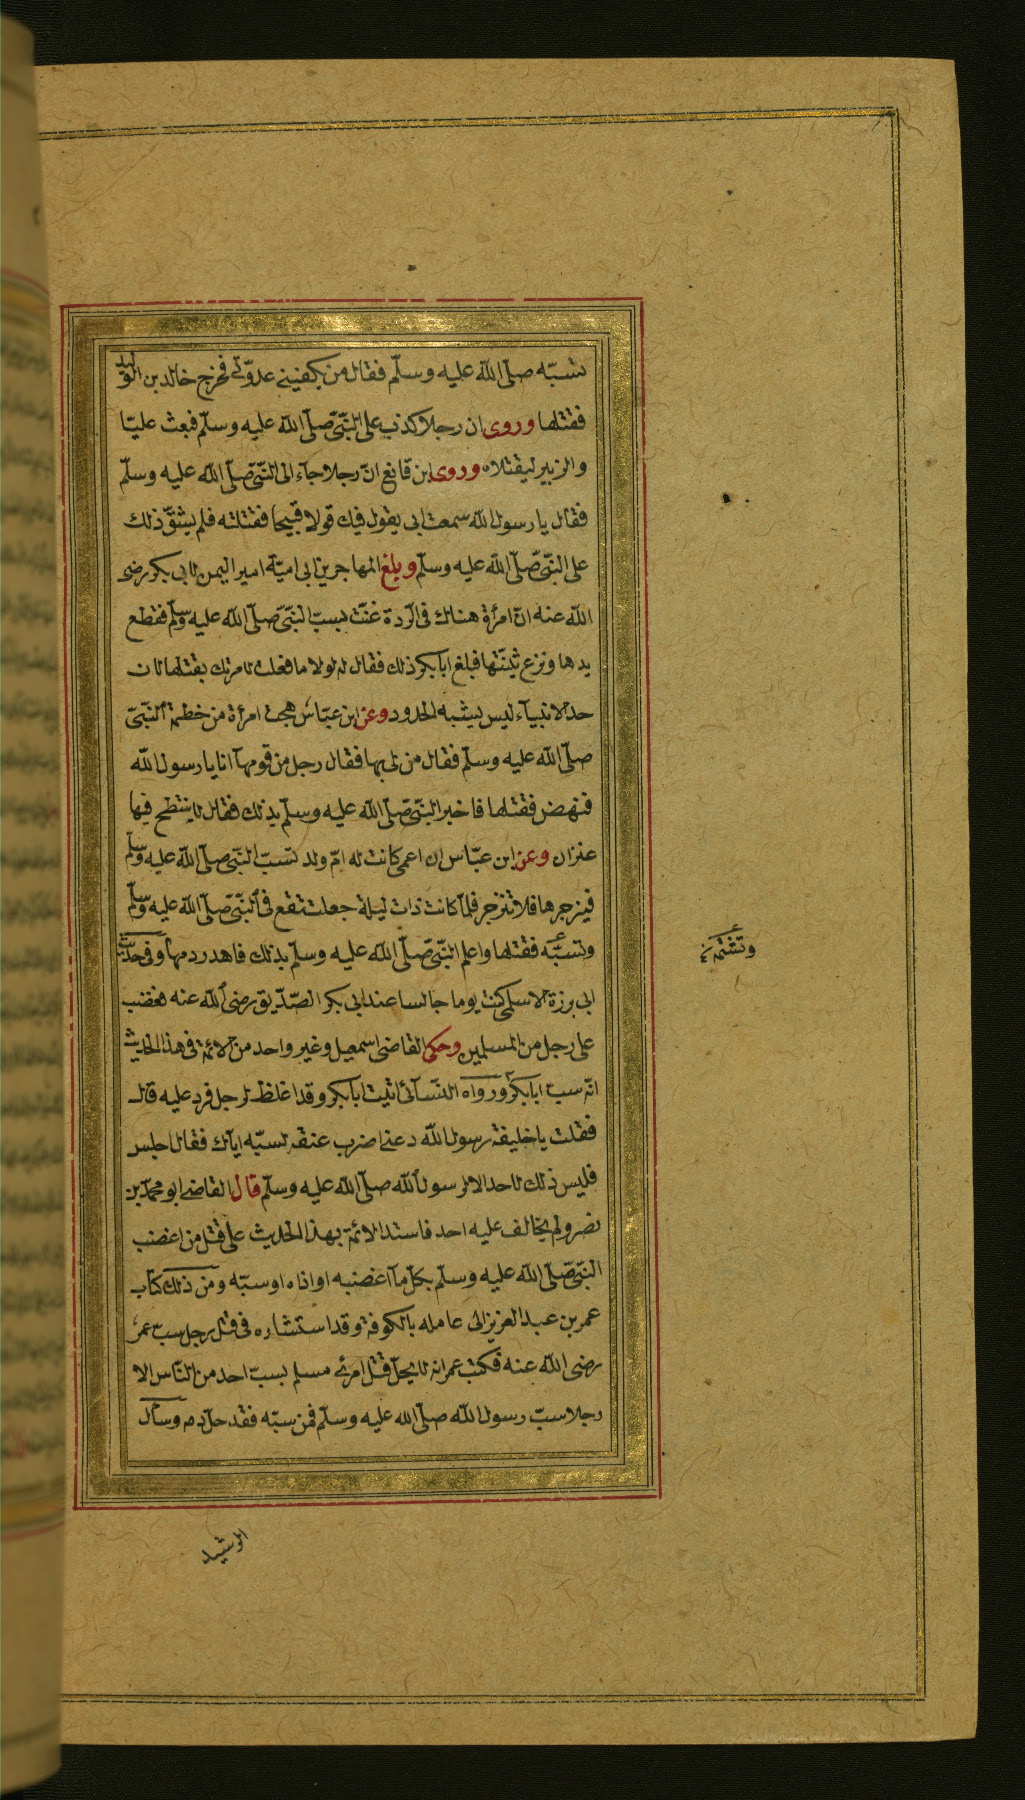 تسبّه صلّى الله عليه وسلّم فقال من يكفينى عدوّى فخرج خالد بن الوليد
فقتلها وروى ان رجلا كذب على النّبىّ صلّى الله عليه وسلّم فبعث عليّا
والزبير ليقتلاه وروى ابن قانع انّ رجلا جآء الى النّبىّ صلّى الله عليه وسلّم
فقال يا رسول الله سمعت ابى يقول فيك قولا قبيحا فقتلته فلم يشقّ ذلك
على النّبىّ صلّى الله عليه وسلّم وبلغ المهاجر بن ابى اميّة امير اليمن لابى بكر رضى
الله عنه انّ امرأة هناك فى الرّدة غنّت بسبّ النّبىّ صلّى الله عليه وسلّم فقطع
يدها ونزع ثنيّتها فبلغ ابا بكر ذلك فقال له لولا ما فعلت لامرتك بقتلها لان
حدّ الانبيآء ليس يشبه الحدود وعن ابن عبّاس هجت امرأة من خطمة النّبىّ
صلّى الله عليه وسلّم فقال من لى بها فقال رجل من قومها انا يا رسول الله
فنهض فقتلها فاخبر النّبىّ صلّى الله عليه وسلّم بذلك فقال لا ينتطح فيها
عنزان وعن ابن عبّاس ان اعمى كانت له امّ ولد تسبّ النّبىّ صلّى الله عليه وسلّم
فيزجرها فلا تنزجر فلمّا كانت ذات ليلة جعلت تقع فى النّبىّ صلّى الله عليه وسلّم
وتسبّه فقتلها واعلم النّبىّ صلّى الله عليه وسلّم بذلك فاهدر دمها وفى حديث
وتشتمه
ابى برزة الاسلمى كنت يوما جالسا عند ابى بكر الصّدّيق رضى الله عنه فغضب
على رجل من المسلمين وحكى القاضى اسمعيل وغير واحد من الائمّة فى هذا الحديث
انّه سبّ ابا بكر ورواه النّسائى اتيت ابا بكر وقد اغلظ لرجل فرد عليه قال
فقلت يا خليفة رسول الله دعنى اضرب عنقه لسبّه ايّاك فقال اجلس
فليس ذلك لاحد الا لرسول الله صلّى الله عليه وسلّم قال القاضى ابو محمّد بن
نصر ولم يخالف عليه احد فاستدل الائمّة بهذا الحديث على قتل من اغضب
النّبىّ صلّى الله عليه وسلّم بكلّ مآ اغضبه او اذاه او سبّه ومن ذلك كتاب
عمر بن عبد العزيز الى عامله بالكوفة وقد استشاره فى قتل رجل سبّ عمر
رضى الله عنه فكتب عمر انه لا يحلّ قتل امرئ مسلم بسبّ احد من النّاس الا
رجلا سبّ رسول الله صلّى الله عليه وسلّم فمن سبّه فقد حلّ دمه وسأل
الرشيد